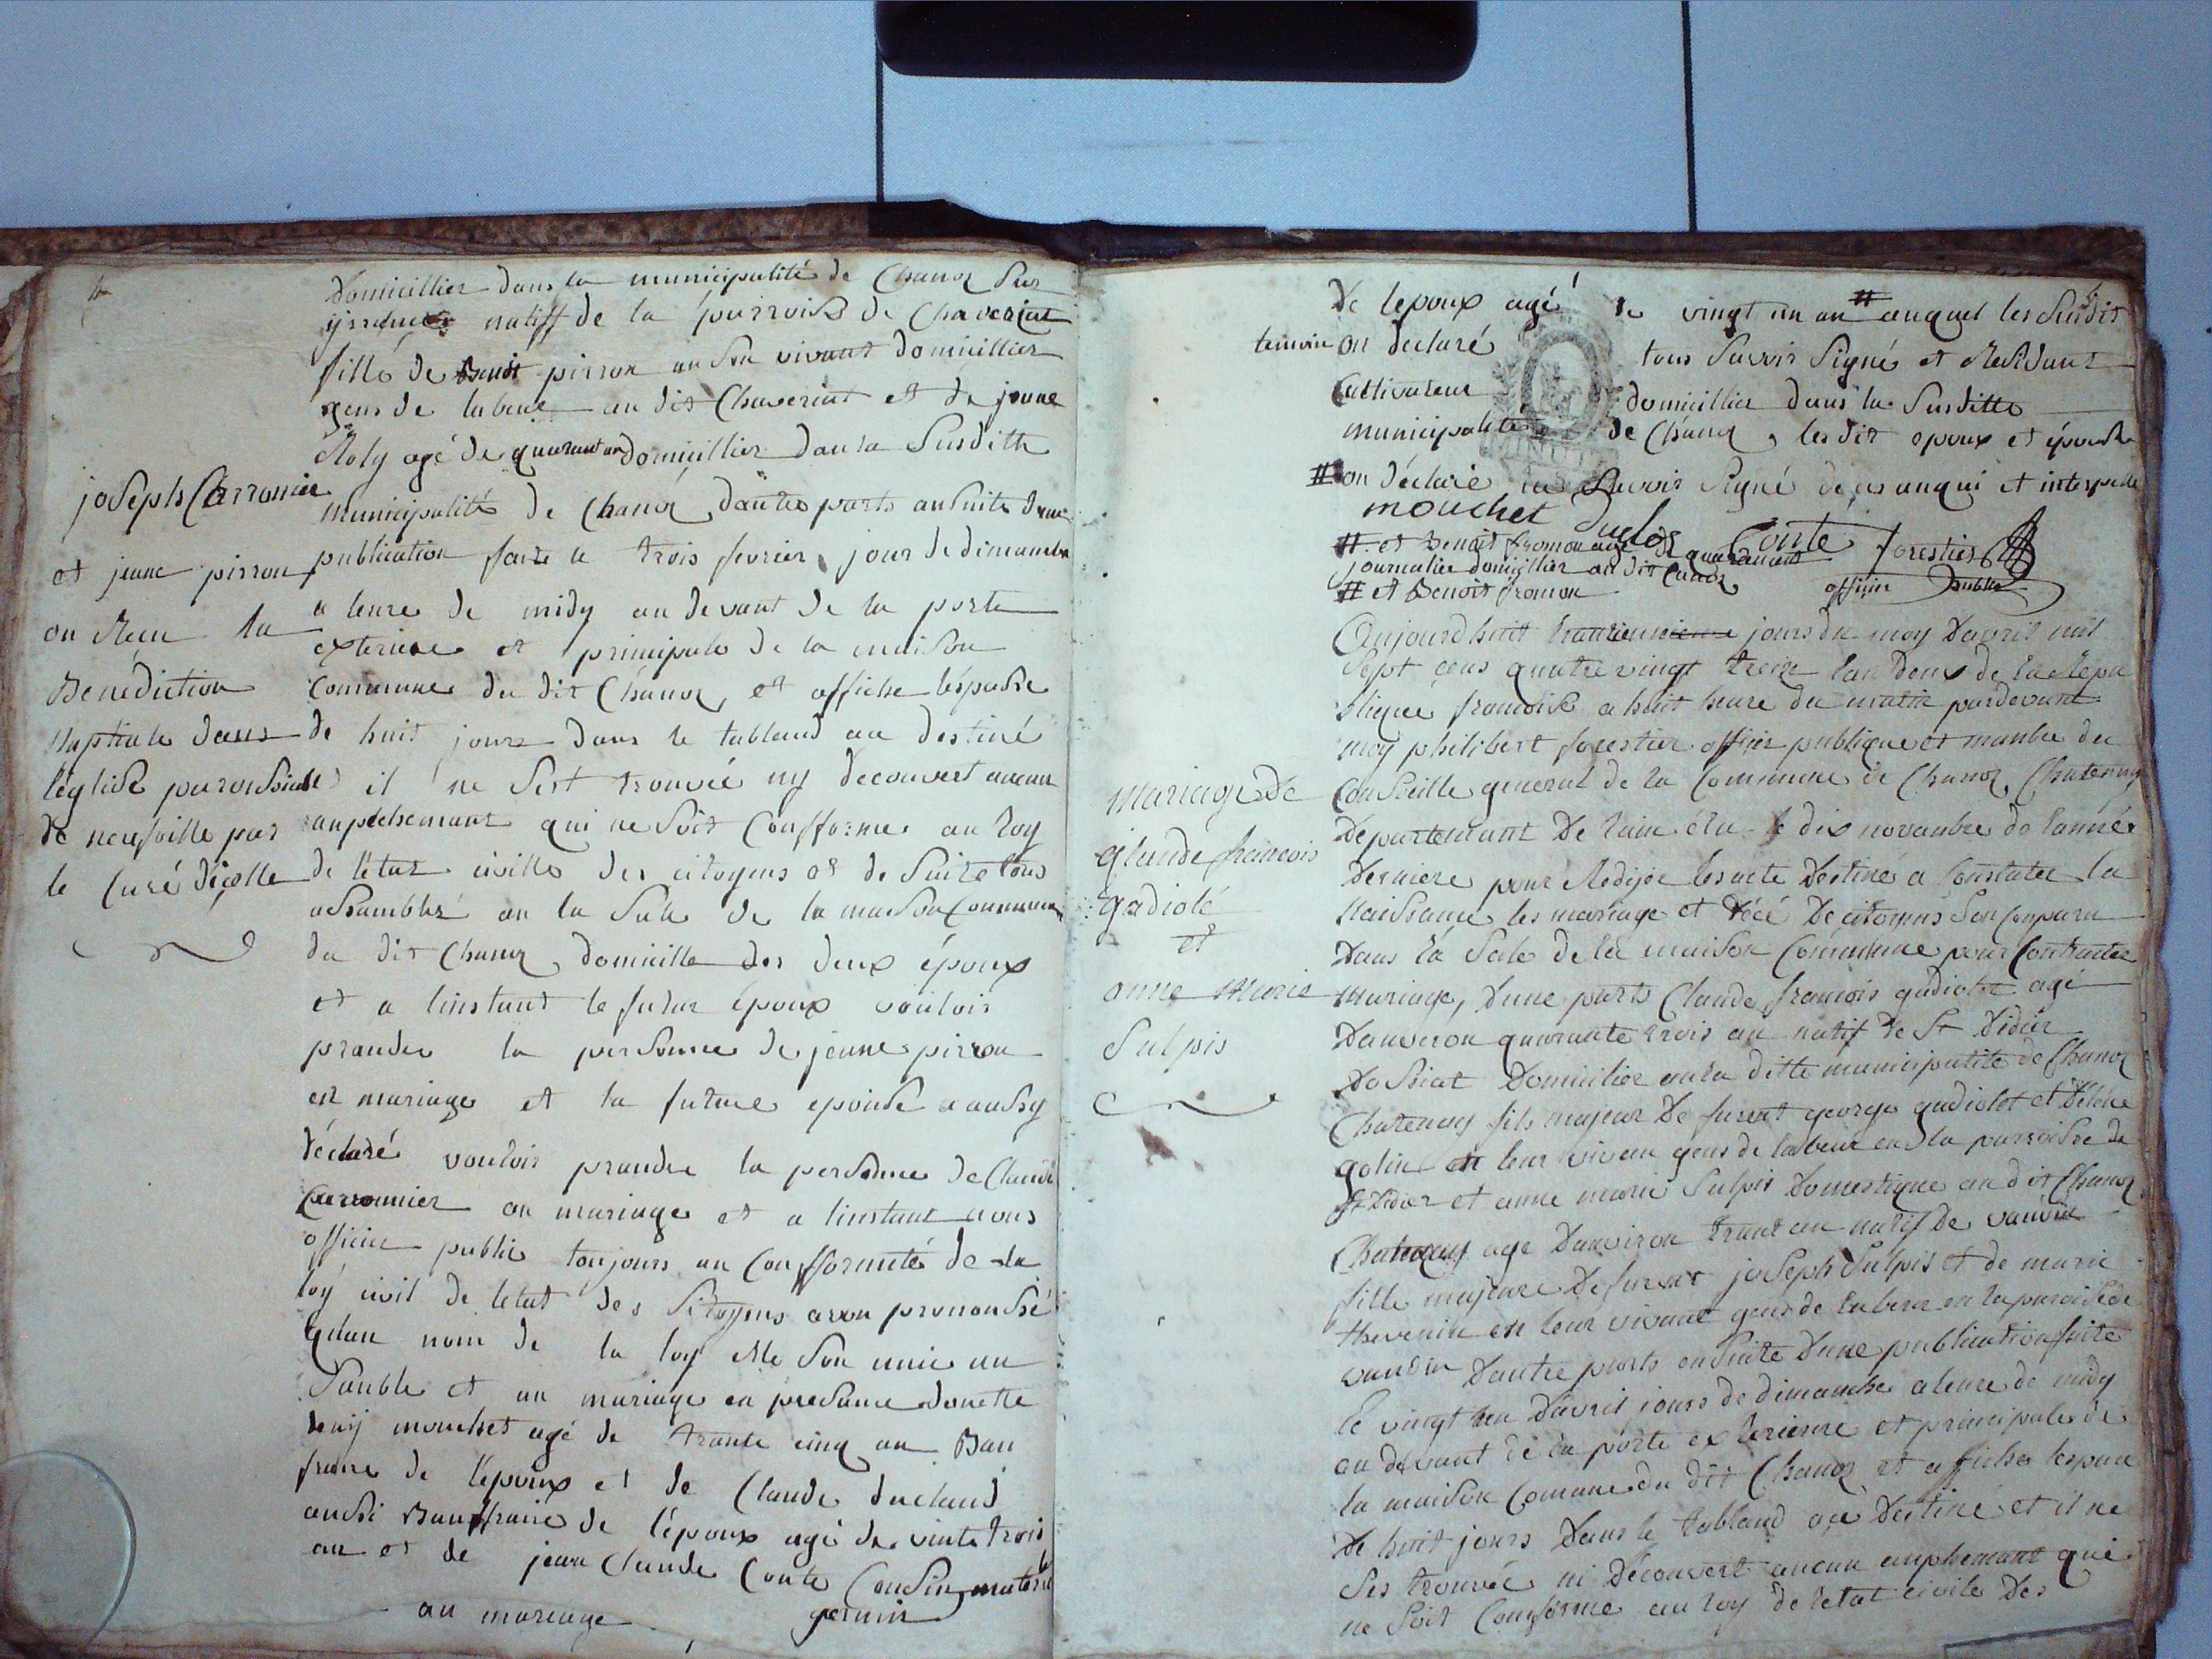 domicillier dans la municipalité de Chanoz par
natiff de la parroise de Chaveriat
fille de Benoit pirron an son vivant domicillier
gens de labeur au dit Chaveriat et de jeane
Roly agé de quarant an domicillier dan la Susditte
municipalité de Chanoz d'autre parts ansuite d'une
publication faite le trois fevrier jour de dimanche
a leure de midy au devant de la porte
exterieure et principale de la maison
Commune du dit Chanoz, et affiche léspasse
de huit jours dans le tablaud au destiné
il ne sest trouvé ny decouvert aucun
anpechemant qui ne soit Confforme au loy
de l'état civille des citoyens et de suite tous
assamblez an la sale de la maison Commune
du dit Chanoz domicille des deux époux
et a linstant le futur époux vouloir
prandre la personne de jeane pirron
en mariage et la future epouse a aussy
déclaré vouloir prandre la personne de Claude
Carronnier an mariage et a linstant nous
officier public toujours an Confformité de la
loy civil de letat des Sitoyens avon prononssé
qu'au nom de la loy son unie an
Sanble et an mariage en presance
mouchet agé de trante cinq an Bau
fraire de l'époux et de Claude duclaud
aussi Bauffraire de l'époux agé de vinte trois
an et de jean Claude Conte Cousin maternel
au mariage germin
joseph Carronnier
et jeane pirron
on Recu la
Benédiction
Nuptiale dans
léglise paroissiale
de neufville par
le Curé digolle
de lepoux agé de vingt un an # auquel les Susdit
temoin on declaré tous Savoir Signé et Residant
Cultivateur domicillier dans la Susditte
municipalité de Chanoz, les dit epoux et épouse
# on déclaré ne Savoir Signé de ce anqui et interpellé
mouchet Duclos Conte forestier
# et Benoit fromon agé de quarant
journalier domicillier au dit Chanoz
# et Benoit fromon officier public
Aujourdhuit jours du moy davril mil
Sept cens quatre vingt treize lan deux de la Repu
blique francoise a huit heure du matin pardevant
moy philibert forestier officier publique et manbre du
Conseille general de la Commune de Chanoz Chatenay
departemant de lain élu le dix novanbre de lanné
derniere pour Redijér les acte destiné a Constater la
Naissance les mariage et décé de citoyens son Conparu
dans la Sale de la maison Commune pour Contracter
mariage, dune parts Claude francois gadiolet agé
danveron quarante trois an natif de St didier
daussiat domicilier en la ditte municipalité de Chanoz
Chatenay fils majeur de furent george gadiolet et
golin en leur vivan gens de labeur en la parroisse de
St didier et anne marie Sulpis domestique au dit Chanoz
Chatenay agé danviron trant an natif de
fille majeure de furent joseph Sulpis et de marie
thevenin en leur vivant gens de labeur en la paroisse de
dautre parts ensuite dune publication faite
le vingt un davril jours de dimanche a leure de midy
au devant de la porte exterieure et principale de
la maison Comune du dit Chanoz et affiche lespace
de huit jours dans le tablaud au destiné et il ne
Ses trouvé ni découvert aucun anphemant qui
ne Soit Conforme au loy de l'état civile des
mariage de
glaude francois
gadiolé
et
anne Marie
Sulpis